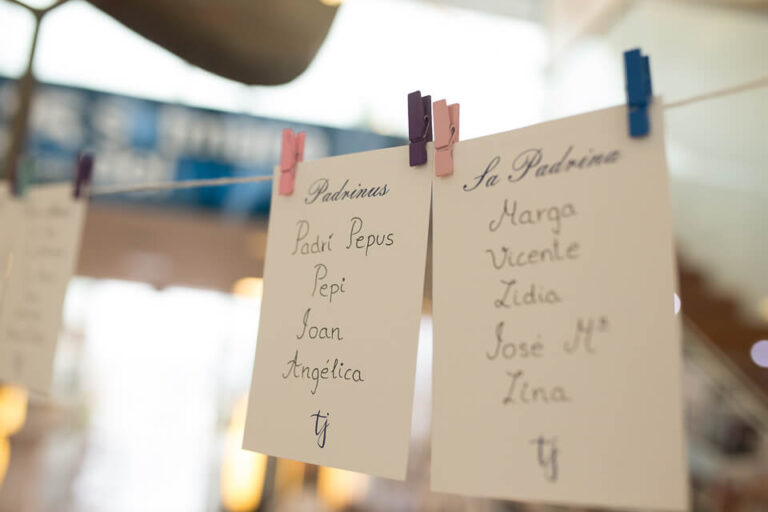 Padrinus
Padrí Pepus
Pepi
Joan
Angélica
tj
Sa Padrina
Marga
Vicente
Lidia
José Mª
Lina
tj